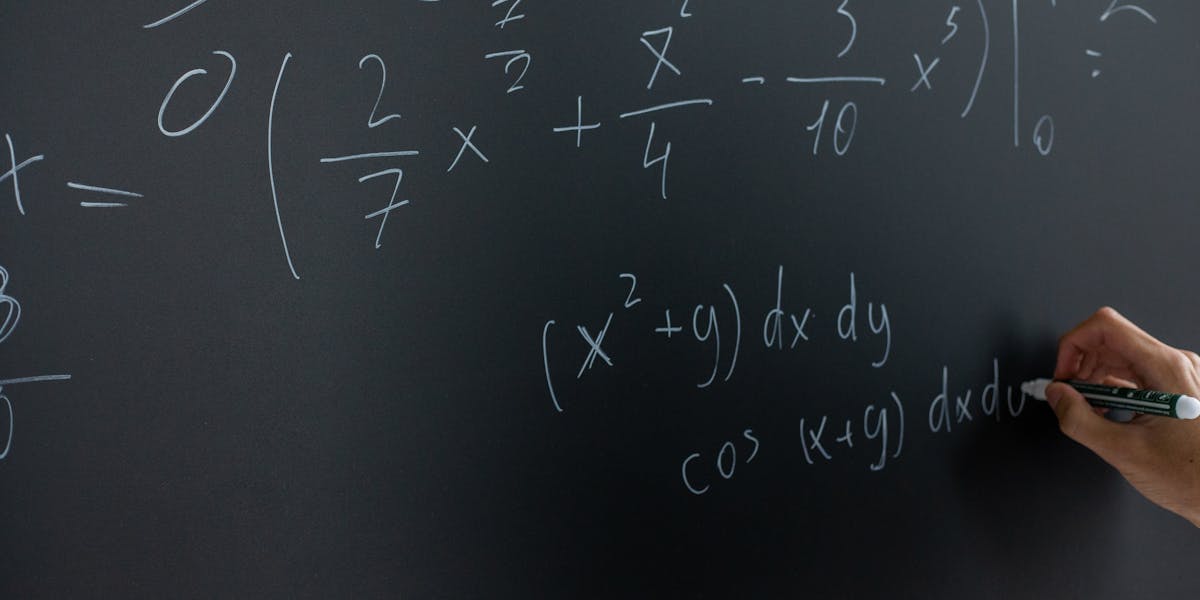 x = 0 ( 2/7 x 7/2 + x/4 - 3/10 x^5 ) |0 =
(x² + y) dx dy
cos (x+y) dx d